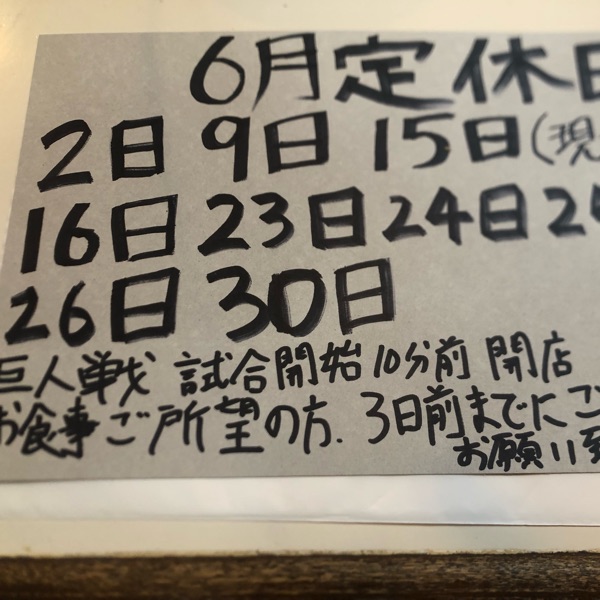 6月定休日
2日 9日 15日(現
16日 23日 24日 2
26日 30日
巨人戦 試合開始10分前 開店
お食事ご所望の方、3日前までにご
お願い致